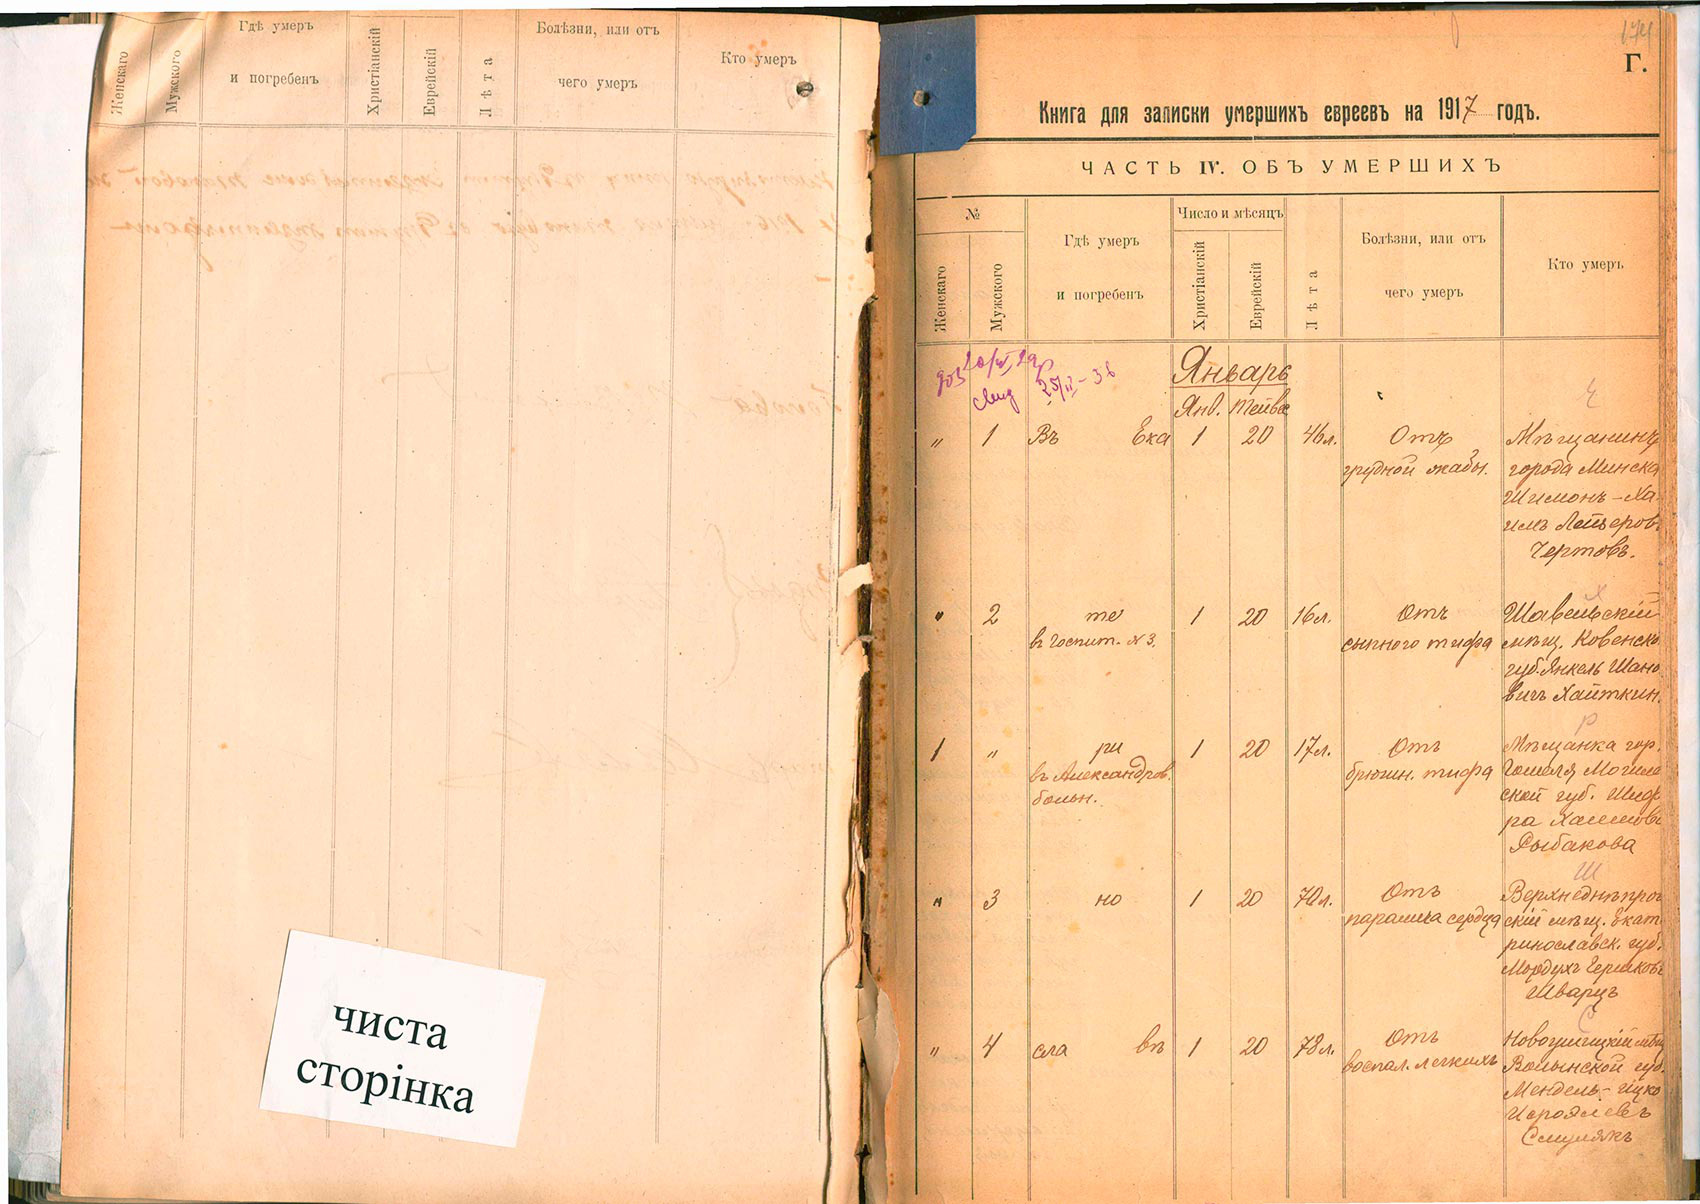 Женскаго
Мужского
Гдѣ умеръ
и погребенъ
Христіанскій
Еврейскій
Лѣта
Болѣзни, или отъ
чего умеръ
Кто умеръ
чиста
сторінка
174
Г.
Книга для записки умершихъ евреевъ на 1917 годъ.
ЧАСТЬ IV. ОБЪ УМЕРШИХЪ
№
Женскаго
Мужского
Гдѣ умеръ
и погребенъ
Число и мѣсяцъ
Христіанскій
Еврейскій
Лѣта
Болѣзни, или отъ
чего умеръ
Кто умеръ
Январь
Янв. Тейвес
„ 1 Въ Ека 1 20 46л. Отъ Мѣщанинъ
грудной жабы. города Минска
Шимонъ-Ха
имъ Лейзеров.
Чертовъ.
„ 2 те 1 20 16л. Отъ Шавельскій
в госпит. №3. сыпного тифа мѣщ. Ковенско
губ. Янкель Шано
вичъ Хайткин.
1 „ ри 1 20 17л. Отъ Мѣщанка гор.
въ Александров. брюшн. тифа Гомеля Могиле
больн. ской губ. Шиф
ра Хаимова
Рыбакова
„ 3 но 1 20 70л. Отъ Верхнеднѣпров
паралича сердца скій мѣщ. Екат
ринославск. губ.
Мордухъ Гершковъ
Шварцъ
„ 4 сла въ 1 20 78л. Отъ
воспал. легкихъ Волынской губ.
Мендель-Ицко
Исроялевъ
Смулякъ